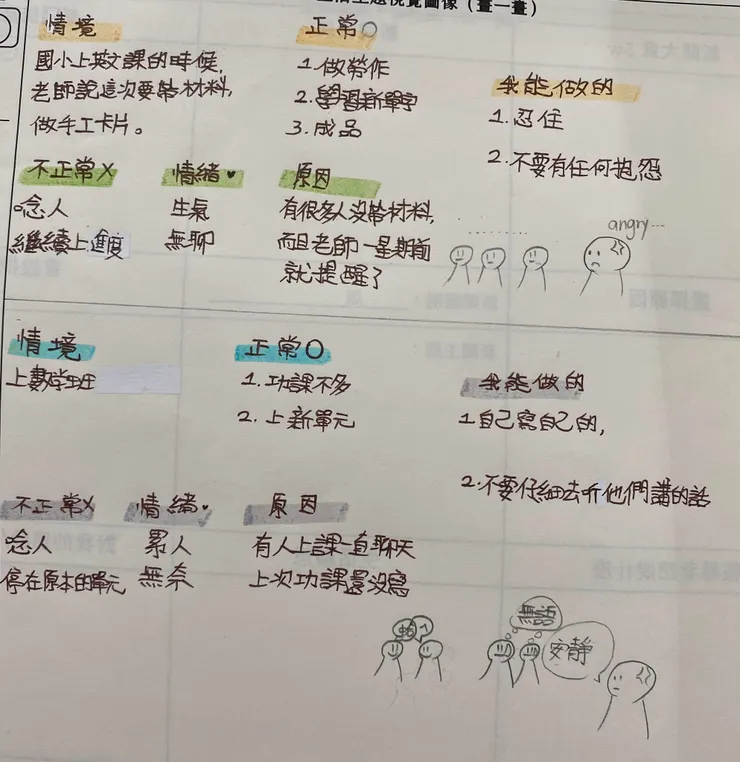 生活主題視覺圖像（畫一畫）
情境
國小上英文課的時候,
老師說這次要帶材料,
做手工卡片。
正常O
1.做勞作
2.學習新單字
3.成品
我能做的
1.忍住
2.不要有任何抱怨
不正常X
唸人
繼續上進度
情緒♥
生氣
無聊
原因
有很多人沒帶材料,
而且老師一星期前
就提醒了
.........
angry...
情境
上數學班
正常O
1.功課不多
2.上新單元
我能做的
1自己寫自己的,
2.不要仔細去听他們講的話
不正常X
唸人
停在原本的單元
情緒♥
累人
無奈
原因
有人上課一直聊天
上次功課還沒寫
無語
安靜